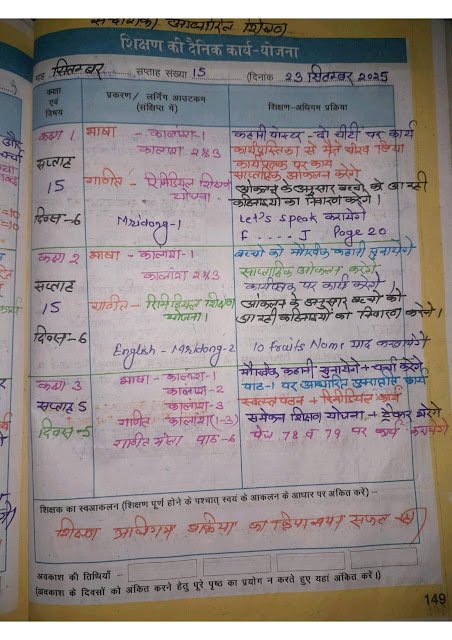 सन्दर्शिका आधारित शिक्षण
शिक्षण की दैनिक कार्य-योजना
माह सितम्बर सप्ताह संख्या 15 (दिनांक 23 सितम्बर 2025
कक्षा एवं विषय
प्रकरण / लर्निंग आउटकम (संक्षिप्त में)
शिक्षण-अधिगम प्रक्रिया
कक्षा 1 भाषा - कालांश-1 कहानी पोस्टर - दो चींटी पर कार्य
कालांश 2 व 3 कार्यपुस्तिका से
सप्ताह कार्यपत्रक पर कार्य
साप्ताहिक आकलन करेंगे
15 गणित - रिमेडियल शिक्षण योजना - आकलन के अनुसार बच्चो को आ रही
कठिनाइयों का निवारण करेंगे।
दिवस-6 Mridang-1 Let's speak करायेंगे
F ..... J Page 20
कक्षा 2 भाषा - कालांश-1 बच्चो को मौखिक कहानी सुनायेंगे
कालांश 2 व 3 साप्ताहिक आकलन करेंगे
सप्ताह कार्यपत्रक पर कार्य करेंगे
15 गणित - रिमेडियल शिक्षण योजना। आकलन के अनुसार बच्चो को
आ रही कठिनाइयों का निवारण करेंगे।
दिवस-6
English - Mridang-2 10 fruits Name याद करवायेंगे
कक्षा 3 भाषा - कालांश-1 मौखिक कहानी सुनायेंगे + चर्चा करेंगे
कालांश-2 पाठ-1 पर आधारित कार्य
सप्ताह 5 कालांश-3 स्वतन्त्र पठन + रिमेडियल कार्य
दिवस-5 गणित - कालांश (1-3) समेकन शिक्षण योजना + ट्रैकर भरेंगे
गणित मेला पाठ-6 पेज 78 व 79 पर कार्य करायेंगे
शिक्षक का स्वआकलन (शिक्षण पूर्ण होने के पश्चात् स्वयं के आकलन के आधार पर अंकित करें) –
शिक्षण अधिगम प्रक्रिया का क्रियान्वयन सफल
अवकाश की तिथियाँ -
(अवकाश के दिवसों को अंकित करने हेतु पूरे पृष्ठ का प्रयोग न करते हुए यहां अंकित करें।)
149